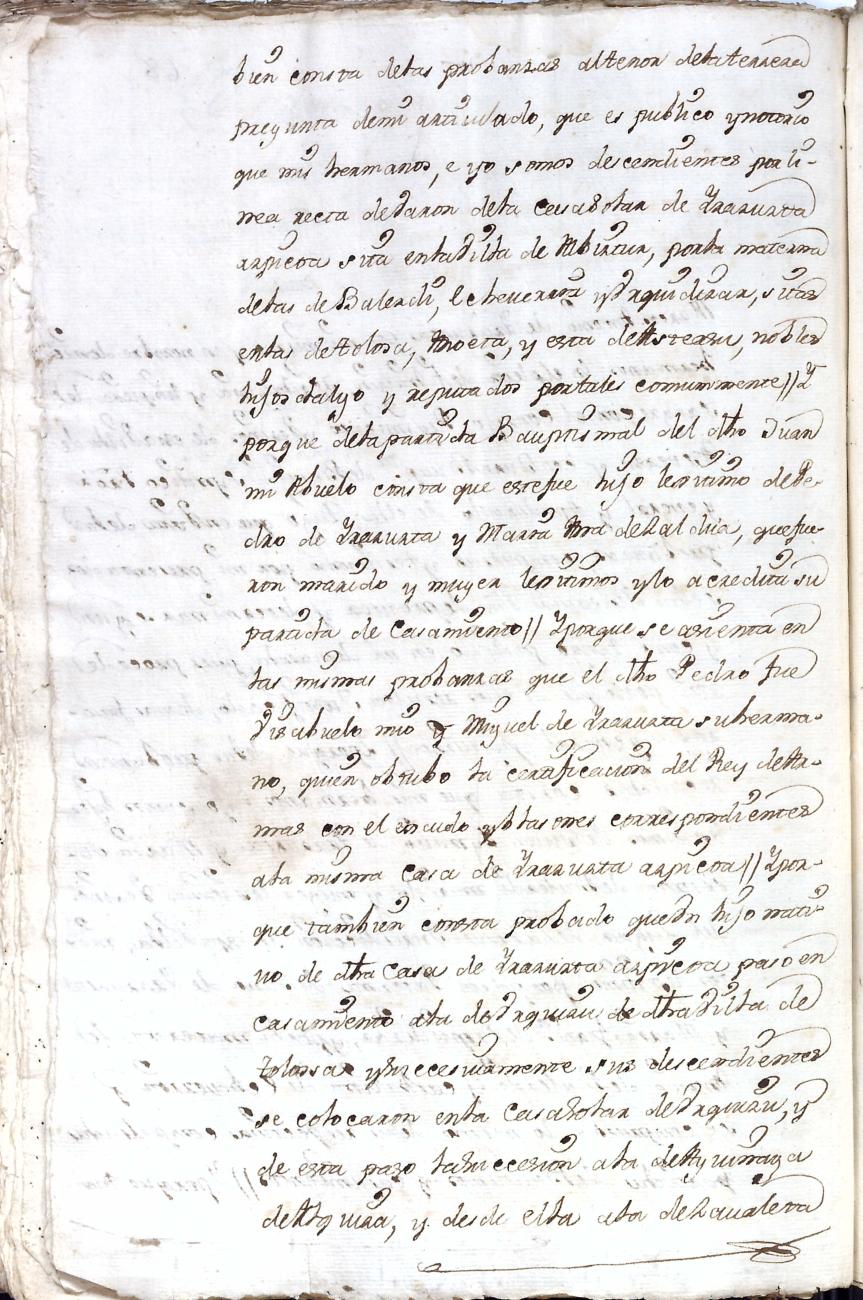 bien consta de las probanzas al tenor de la terzera
pregunta de mi articulado, que es publico y notorio
que mis hermanos, e yo somos descendientes por li-
nea recta de Varon de la Casa Solar de Yrarurta
azpicoa sita en la Villa de Albiztur, por la materna
de las de Balerdi, Echeverria y Urquidizar, sitas
en las de Tolosa, Anoeta, y esta de Asteasu, nobles
hijos dalgo y reputados por tales comunmente // Y
porque de la partida Bauptismal del dho Juan
mi Abuelo consta que este fue hijo lexitimo de Pe-
dro de Yrarurta y Maria Ana de Zaldua, que fue-
ron marido y muger lexitimos y lo acredita su
partida de Casamiento // Y porque se asienta en
las mismas probanzas que el dho Pedro fue
Visabuelo mio y Miguel de Yrarurta su herma-
no, quien obtubo la certificacion del Rey de Ar-
mas con el escudo y blasones correspondientes
a la misma Casa de Yrarurta azpicoa // Y por-
que tambien consta probado que Un hijo nati-
vo de dha Casa de Yrarurta azpicoa pasó en
casamiento a la de Urquizu de dha Villa de
Tolosa y sucesivamente sus descendientes
se colocaron en la Casa Solar de Urquizu, y
de esta pazo la succesion a la de Aguinaga
de Atquiza, y desde ella a la de Zavaleta